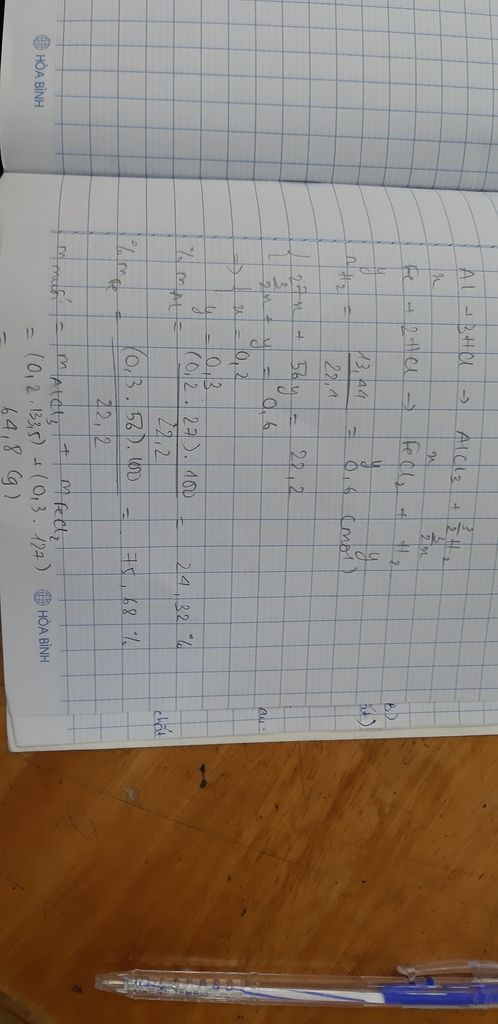 Al + 3HCl → AlCl3 + 3/2 H2
x x 3/2x
Fe + 2HCl → FeCl2 + H2
y y y
nH2 = 13,44 / 22,4 = 0,6 (mol)
{ 27x + 56y = 22,2
3/2x + y = 0,6
=> { x = 0,2
y = 0,3
% mAl = (0,2 . 27) . 100 / 22,2 = 24,32 %
% mFe = (0,3 . 56) . 100 / 22,2 = 75,68 %
m muối = m AlCl3 + m FeCl2
= (0,2 . 133,5) + (0,3 . 127)
= 64,8 (g)
HÒA BÌNH
HÒA BÌNH
au.
chất